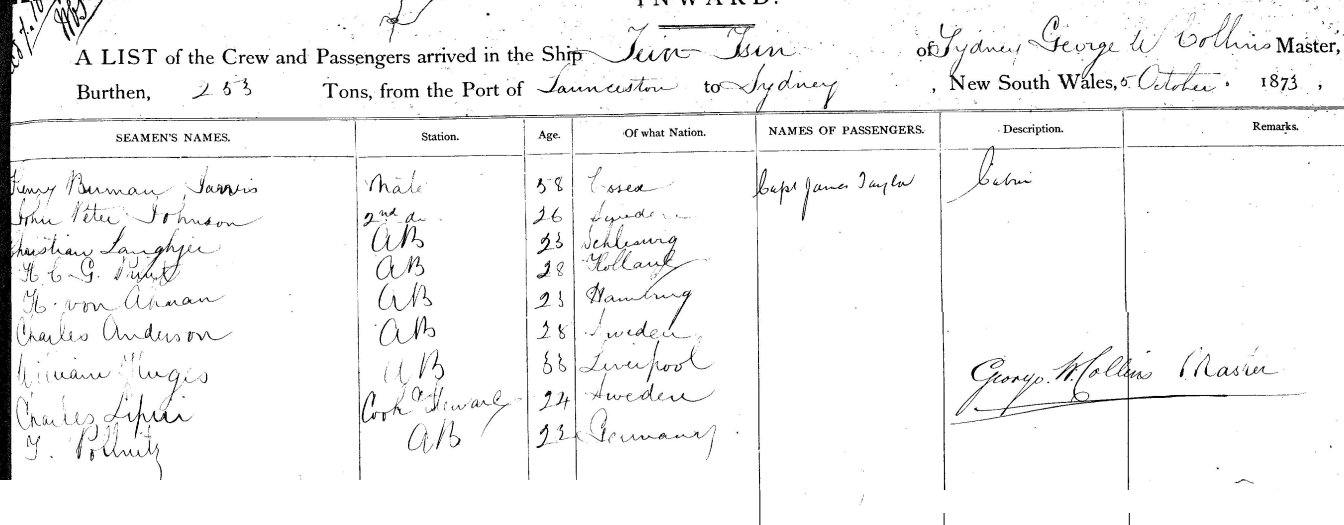 INWARD.
A LIST of the Crew and Passengers arrived in the Ship Tsin Tsin of Sydney George W Collins Master,
Burthen, 253 Tons, from the Port of Launceston to Sydney, New South Wales, 5 October 1873,
SEAMEN'S NAMES. Station. Age. Of what Nation. NAMES OF PASSENGERS. Description. Remarks.
Henry Jarvis Mate 38 Essex Capt James Taylor Cabin
John Peter Johnson 2nd do 26 Sweden
Christian AB 23
H C G AB 28 Holland
H. von AB 23 Hamburg
Charles Anderson AB 28 Sweden
William Huges AB 33 Liverpool
Charles Cook & Steward 24 Sweden
F. Pollnitz AB 23 Germany
George W. Collins Master